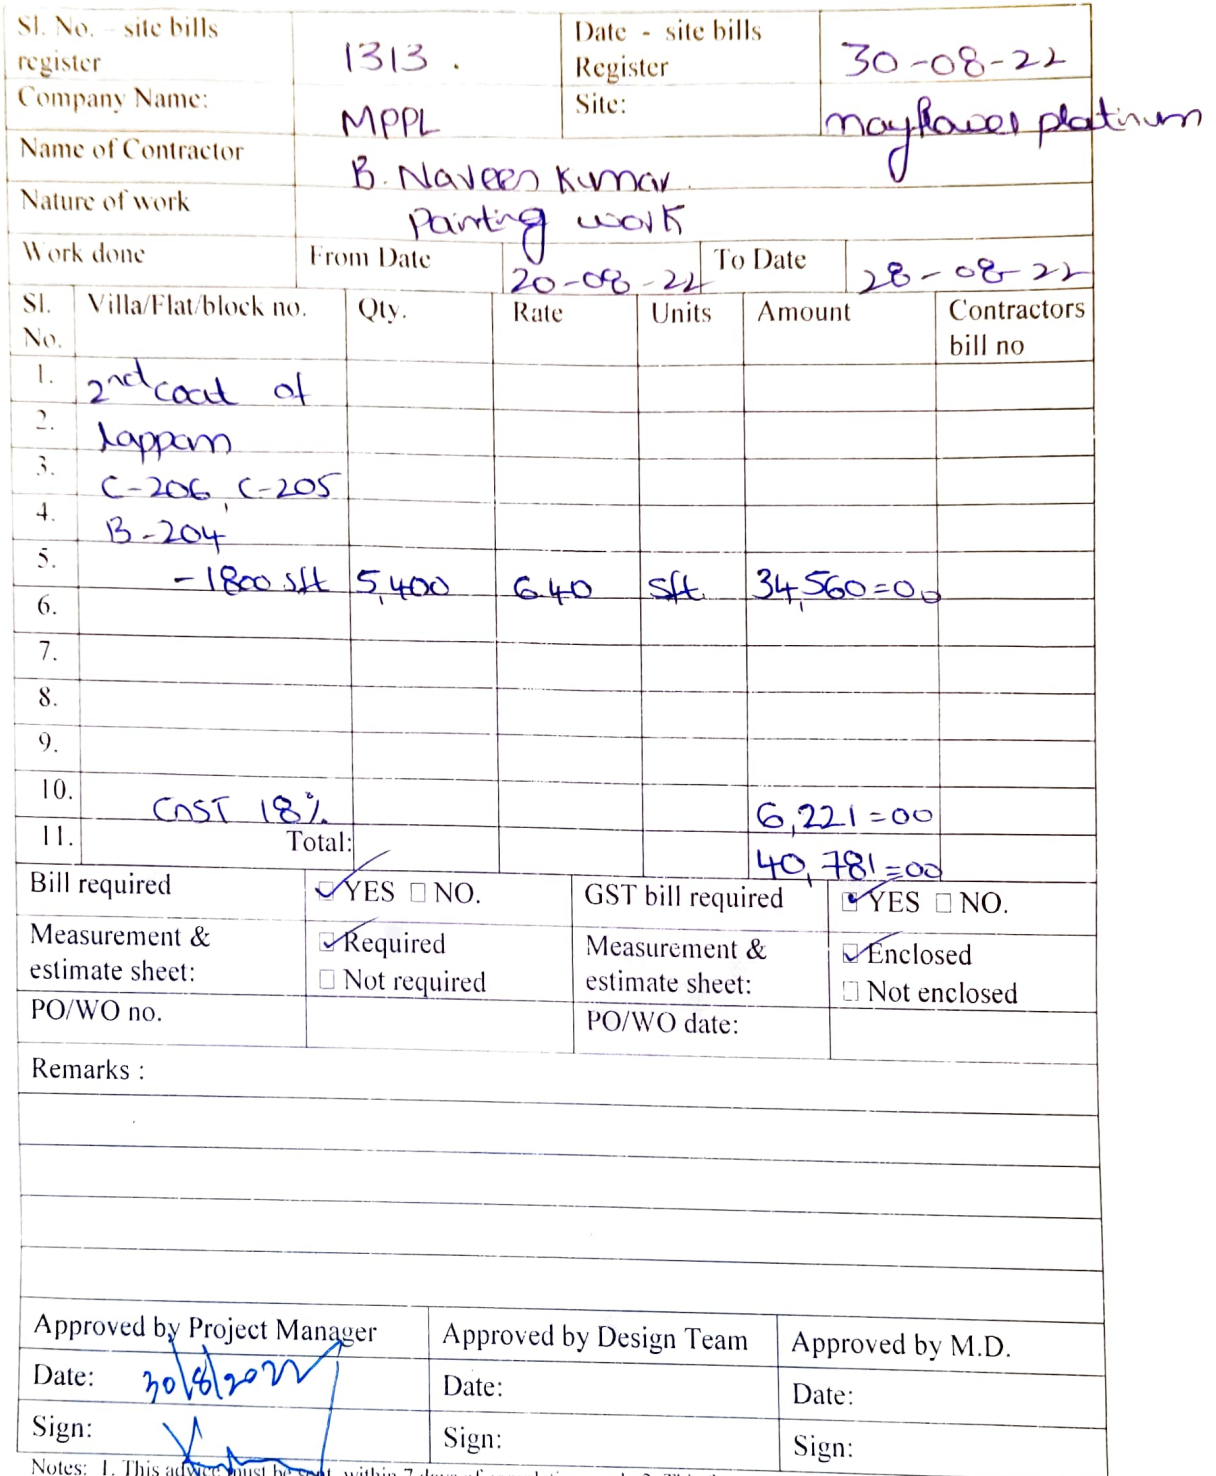 Sl. No. - site bills register 1313 . Date - site bills Register 30-08-22
Company Name: MPPL Site: mayflower platinum
Name of Contractor B. Naveen Kumar
Nature of work Painting work
Work done From Date 20-08-22 To Date 28-08-22
Sl. No. Villa/Flat/block no. Qty. Rate Units Amount Contractors bill no
1. 2nd coat of
2. lappam
3. C-206, C-205
4. B-204
5. -1800 sft 5,400 6.40 sft. 34,560=00
6.
7.
8.
9.
10. GST 18% 6,221=00
11. Total: 40,781=00
Bill required YES NO. GST bill required YES NO.
Measurement & estimate sheet: Required Not required Measurement & estimate sheet: Enclosed Not enclosed
PO/WO no. PO/WO date:
Remarks :
Approved by Project Manager Approved by Design Team Approved by M.D.
Date: 30/8/2022 Date: Date:
Sign: Sign: Sign:
Notes: 1. This advice must be sent within 7 days of